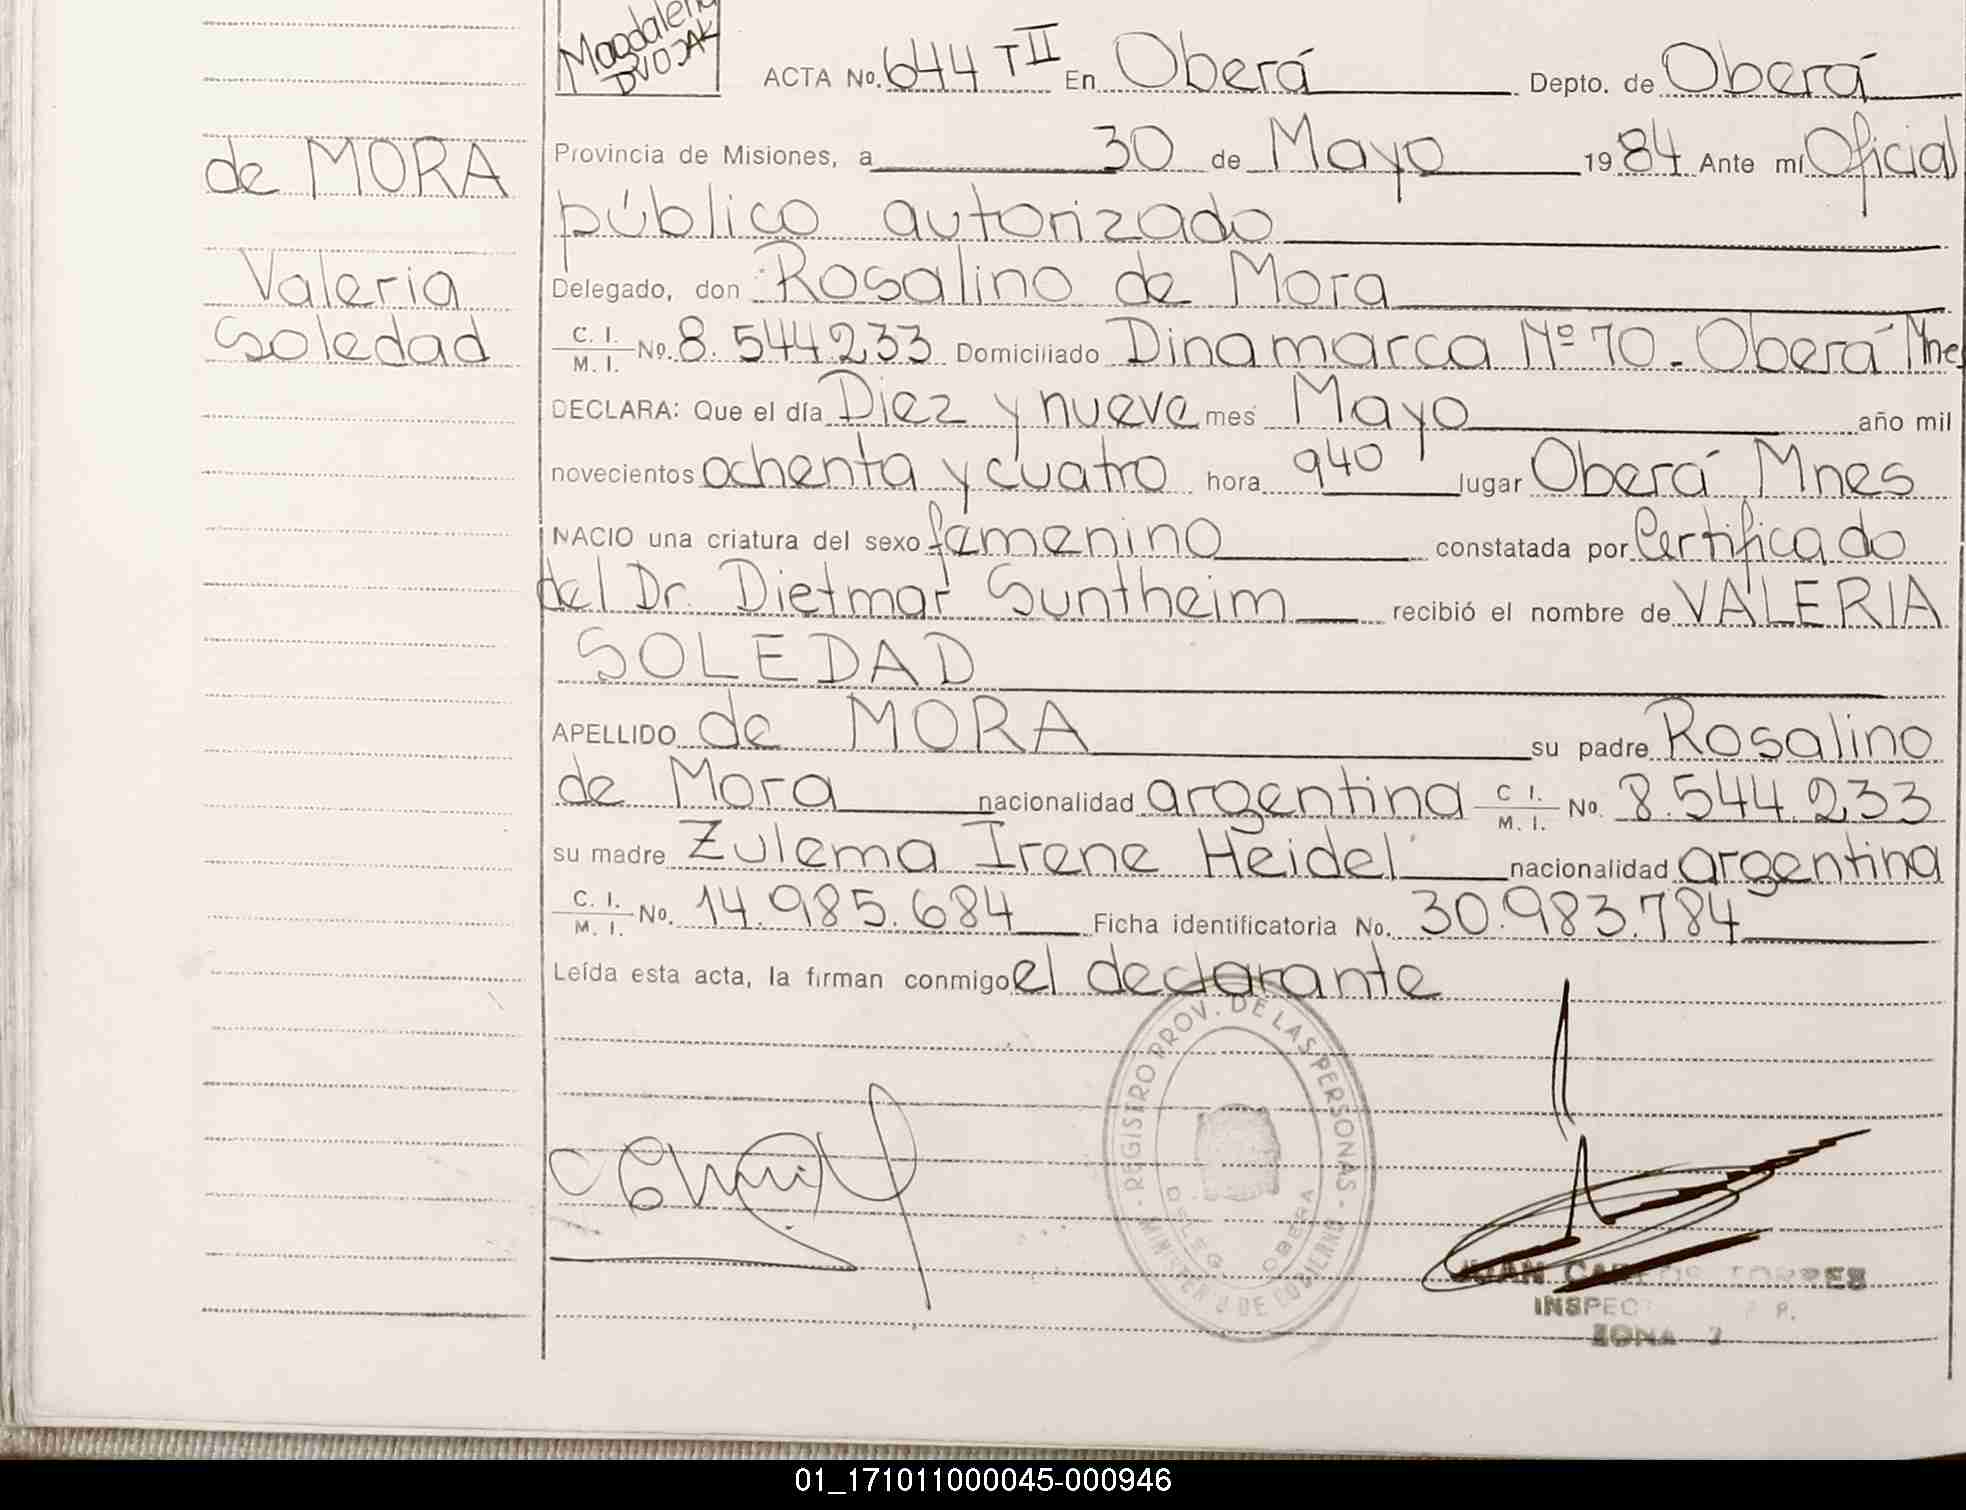 Magdalena
DVOJAK
ACTA No. 644 T II En Oberá Depto. de Oberá
de MORA
Provincia de Misiones, a 30 de Mayo 1984 Ante mí Oficial
público autorizado
Valeria
Delegado, don Rosalino de Mora
Soledad
C. I.
M. I. No. 8.544.233 Domiciliado Dinamarca Nº 70 - Oberá Mnes
DECLARA: Que el día Diez y nueve mes Mayo año mil
novecientos ochenta y cuatro hora 940 lugar Oberá Mnes
NACIO una criatura del sexo femenino constatada por Certificado
del Dr. Dietmar Suntheim recibió el nombre de VALERIA
SOLEDAD
APELLIDO de MORA su padre Rosalino
de Mora nacionalidad argentina C I. M. I. No. 8.544.233
su madre Zulema Irene Heidel nacionalidad argentina
C. I.
M. I. No. 14.985.684 Ficha identificatoria No. 30.983.784
Leída esta acta, la firman conmigo el declarante
REGISTRO PROV. DE LAS PERSONAS
MINISTERIO DE GOBIERNO
DELEG. OBERA
JUAN CARLOS TORRES
INSPEC
ZONA
01_171011000045-000946